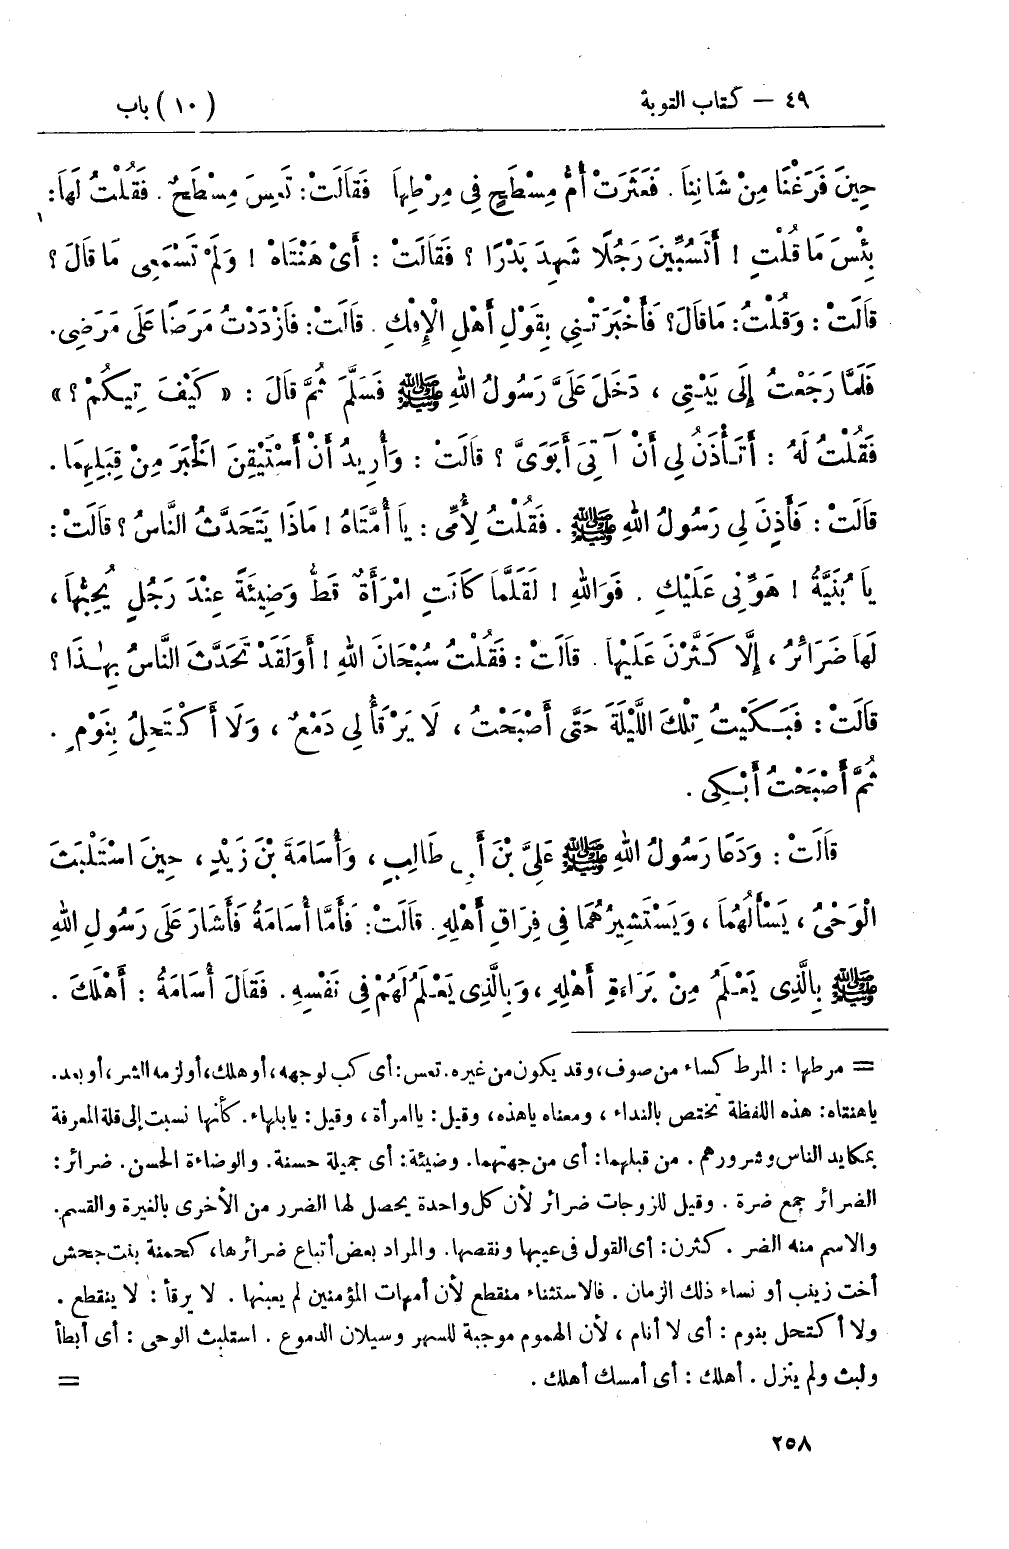 ٤٩ – كتاب التوبة (١٠) باب
حِينَ فَرَغْنَا مِنْ شَانِنَا . فَعَثَرَتْ أُمُّ مِسْطَحٍ فِي مِرْطِهَا فَقَالَتْ: تَعِسَ مِسْطَحٌ . فَقُلْتُ لَهَا:
بِئْسَ مَا قُلْتِ ! أَتَسُبِّينَ رَجُلًا شَهِدَ بَدْرًا ؟ فَقَالَتْ : أَىْ هَنْتَاهْ ! وَلَمْ تَسْمَعِى مَا قَالَ ؟
قَالَتْ : وَقُلْتُ: مَا قَالَ؟ فَأَخْبَرَتْنِي بِقَوْلِ أَهْلِ الْإِفْكِ . قَالَتْ: فَازْدَدْتُ مَرَضًا عَلَى مَرَضِى.
فَلَمَّا رَجَعْتُ إِلَى بَيْتِي ، دَخَلَ عَلَىَّ رَسُولُ اللهِ ﷺ فَسَلَّمَ ثُمَّ قَالَ : « كَيْفَ تِيكُمْ ؟ »
فَقُلْتُ لَهُ : أَتَأْذَنُ لِي أَنْ آتِيَ أَبَوَىَّ ؟ قَالَتْ : وَأُرِيدُ أَنْ أَسْتَيْقِنَ الْخَبَرَ مِنْ قِبَلِهِمَا .
قَالَتْ : فَأَذِنَ لِي رَسُولُ اللهِ ﷺ . فَقُلْتُ لِأُمِّى : يَا أُمَّتَاهُ ! مَاذَا يَتَحَدَّثُ النَّاسُ ؟ قَالَتْ :
يَا بُنَيَّةُ ! هَوِّنِى عَلَيْكِ . فَوَاللهِ ! لَقَلَّمَا كَانَتِ امْرَأَةٌ قَطُّ وَضِيئَةً عِنْدَ رَجُلٍ يُحِبُّهَا ،
لَهَا ضَرَائِرُ ، إِلَّا كَثَّرْنَ عَلَيْهَا . قَالَتْ : فَقُلْتُ سُبْحَانَ اللهِ ! أَوَلَقَدْ تَحَدَّثَ النَّاسُ بِهَٰذَا ؟
قَالَتْ : فَبَكَيْتُ تِلْكَ اللَّيْلَةَ حَتَّى أَصْبَحْتُ ، لَا يَرْقَأُ لِى دَمْعٌ ، وَلَا أَكْتَحِلُ بِنَوْمٍ .
ثُمَّ أَصْبَحْتُ أَبْكِى .
قَالَتْ : وَدَعَا رَسُولُ اللهِ ﷺ عَلِىَّ بْنَ أَبِى طَالِبٍ ، وَأُسَامَةَ بْنَ زَيْدٍ ، حِينَ اسْتَلْبَثَ
الْوَحْىُ ، يَسْأَلُهُمَا ، وَيَسْتَشِيرُهُمَا فِي فِرَاقِ أَهْلِهِ . قَالَتْ: فَأَمَّا أُسَامَةُ فَأَشَارَ عَلَى رَسُولِ اللهِ
ﷺ بِالَّذِى يَعْلَمُ مِنْ بَرَاءَةِ أَهْلِهِ ، وَبِالَّذِى يَعْلَمُ لَهُمْ فِى نَفْسِهِ. فَقَالَ أُسَامَةُ : أَهْلَكَ .
= مرطها : المرط كساء من صوف، وقد يكون من غيره. تعس: أى كب لوجهه، أو هلك، أو لزمه الشر، أو بعد.
ياهنتاه: هذه اللفظة تختص بالنداء ، ومعناه ياهذه، وقيل: ياامرأة ، وقيل: يابلهاء. كأنها نسبت إلى قلة المعرفة
بمكايد الناس وشرورهم . من قبلهما: أى من جهتهما. وضيئة: أى جميلة حسنة. والوضاءة الحسن. ضرائر:
الضرائر جمع ضرة . وقيل للزوجات ضرائر لأن كل واحدة يحصل لها الضرر من الأخرى بالغيرة والقسم.
والاسم منه الضر . كثرن: أى القول فى عيبها ونقصها. والمراد بعض أتباع ضرائرها، كحمنة بنت جحش
أخت زينب أو نساء ذلك الزمان . فالاستثناء منقطع لأن أمهات المؤمنين لم يعبنها . لا يرقأ : لا ينقطع .
ولا أكتحل بنوم : أى لا أنام ، لأن الهموم موجبة للسهر وسيلان الدموع . استلبث الوحى : أى أبطأ
ولبث ولم ينزل . أهلك : أى أمسك أهلك . =
٢٥٨